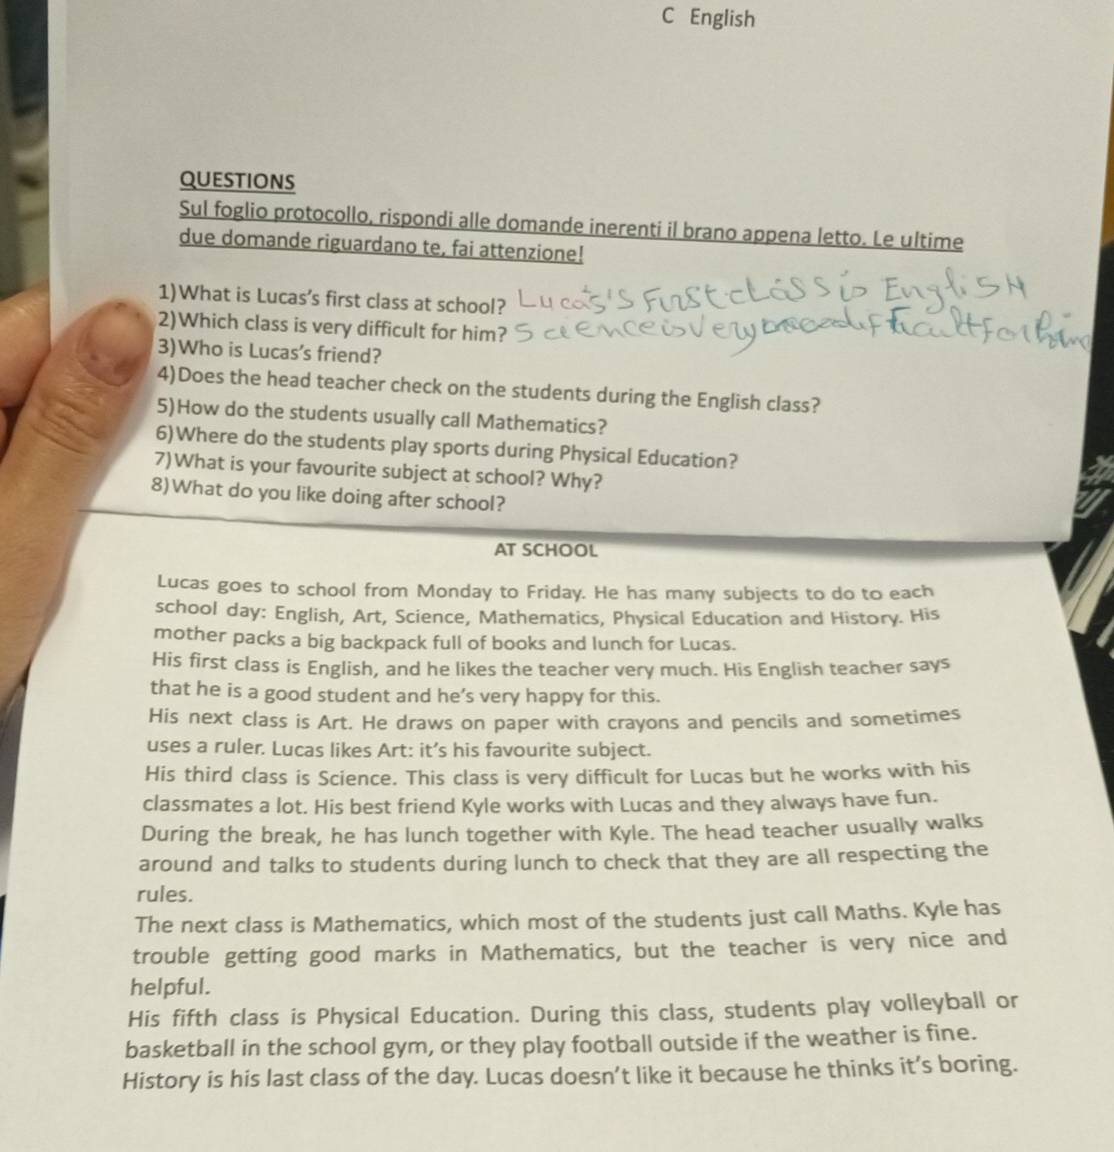 C English
QUESTIONS
Sul foglio protocollo, rispondi alle domande inerenti il brano appena letto. Le ultime
due domande riguardano te, fai attenzione!
1)What is Lucas's first class at school? Lucas's First class is EngliSH
2)Which class is very difficult for him? Science is very difficult for him
3)Who is Lucas's friend?
4)Does the head teacher check on the students during the English class?
5)How do the students usually call Mathematics?
6)Where do the students play sports during Physical Education?
7)What is your favourite subject at school? Why?
8)What do you like doing after school?
AT SCHOOL
Lucas goes to school from Monday to Friday. He has many subjects to do to each
school day: English, Art, Science, Mathematics, Physical Education and History. His
mother packs a big backpack full of books and lunch for Lucas.
His first class is English, and he likes the teacher very much. His English teacher says
that he is a good student and he's very happy for this.
His next class is Art. He draws on paper with crayons and pencils and sometimes
uses a ruler. Lucas likes Art: it's his favourite subject.
His third class is Science. This class is very difficult for Lucas but he works with his
classmates a lot. His best friend Kyle works with Lucas and they always have fun.
During the break, he has lunch together with Kyle. The head teacher usually walks
around and talks to students during lunch to check that they are all respecting the
rules.
The next class is Mathematics, which most of the students just call Maths. Kyle has
trouble getting good marks in Mathematics, but the teacher is very nice and
helpful.
His fifth class is Physical Education. During this class, students play volleyball or
basketball in the school gym, or they play football outside if the weather is fine.
History is his last class of the day. Lucas doesn't like it because he thinks it's boring.